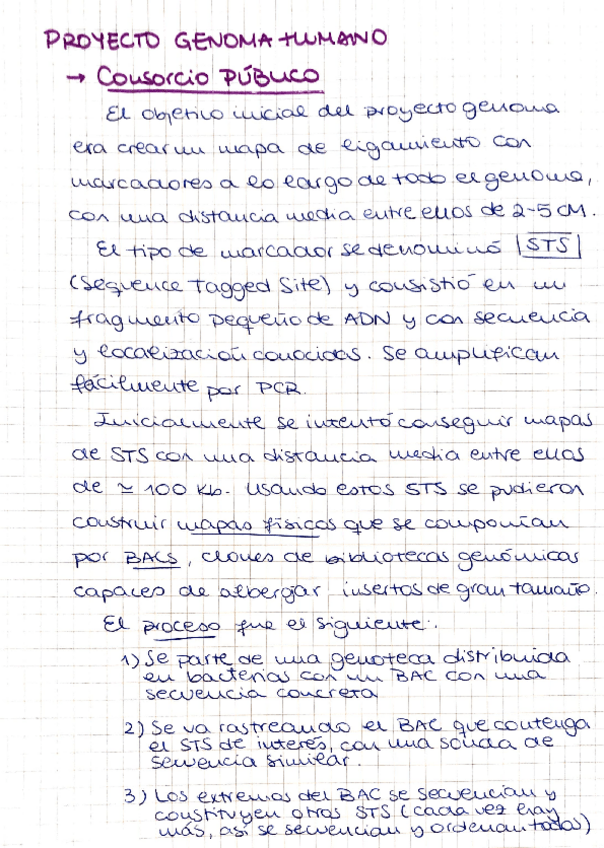 PROYECTO GENOMA HUMANO
→ Consorcio PÚBLICO
El objetivo inicial del proyecto genoma
era crear un mapa de ligamiento con
marcadores a lo largo de todo el genoma,
con una distancia media entre ellos de 2-5 cM.
El tipo de marcador se denominó |STS|
(Sequence Tagged Site) y consistió en un
fragmento pequeño de ADN y con secuencia
y localización conocidas. Se amplifican
fácilmente por PCR.
Inicialmente se intentó conseguir mapas
de STS con una distancia media entre ellos
de ≃ 100 Kb. Usando estos STS se pudieron
construir mapas físicos que se componían
por BACs, clones de bibliotecas genómicas
capaces de albergar insertos de gran tamaño.
El proceso fue el siguiente:
1) Se parte de una genoteca distribuida
en bacterias con un BAC con una
secuencia concreta
2) Se va rastreando el BAC que contenga
el STS de interés, con una sonda de
secuencia similar.
3) Los extremos del BAC se secuencian y
constituyen otros STS (cada vez hay
más, así se secuencian y ordenan todos)